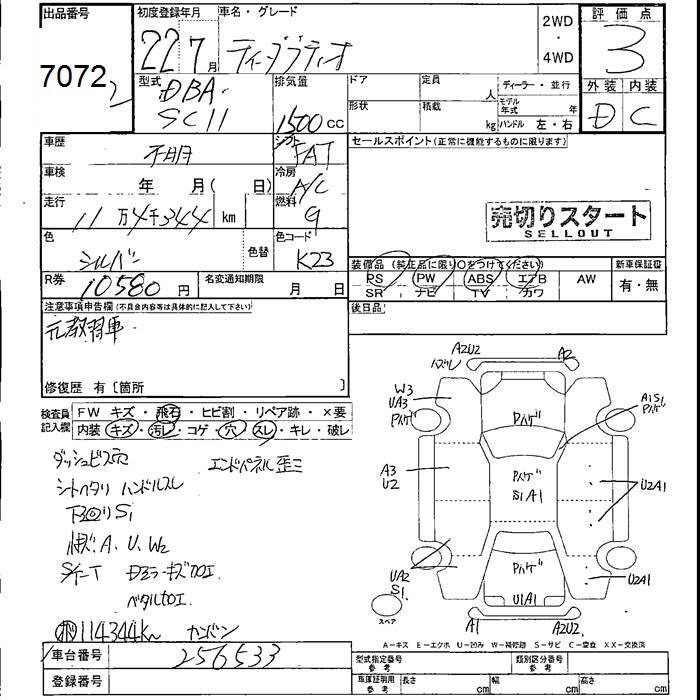 出品番号
7072
2
初度登録年月
22年7月
車名・グレード
ティーダラティオ
2WD
・
4WD
評価点
3
外装 内装
D C
型式
DBA-
SC11
排気量
1500 cc
ドア
定員
人
ディーラー・並行
形状
積載
kg
モデル年式
年
ハンドル 左・右
車歴
不明
シフト
FAT
セールスポイント(正常に機能するものに限ります)
車検
年 月( 日)
冷房
A/C
走行
11万4千344 km
燃料
g
売切りスタート
SELLOUT
色
シルバー
色替
色コード
K23
装備品 (純正品に限り○をつけてください)
新車保証書
PS PW ABS エアB AW
有・無
SR ナビ TV カワ
R券
10580 円
名変通知期限
月 日
後日品
注意事項申告欄(不具合内容等は具体的に記入して下さい)
元教習車
修復歴 有〔箇所 〕
検査員
記入欄
FW キズ・飛石・ヒビ割・リペア跡・×要
内装 キズ・汚レ・コゲ・穴・スレ・キレ・破レ
ダッシュビス穴
エンドパネル歪ミ
シートヘタリ ハンドルスレ
下回りS1
A、U、W2
114344km
A2U2
ハズレ
A2
W3
UA3
Pハゲ
Pハゲ
A1S1
Pハゲ
A3
U2
Pハゲ
S1A1
U2A1
UA2
S1
Pハゲ
U1A1
U2A1
スペア
A1
A2U2
A-キズ E-エクボ U-凹み W-補修跡 S-サビ C-腐食 XX-交換済
車台番号
256533
登録番号
型式指定番号
参考
類別区分番号
参考
車庫証明用
参考
長さ
cm
幅
cm
高さ
cm